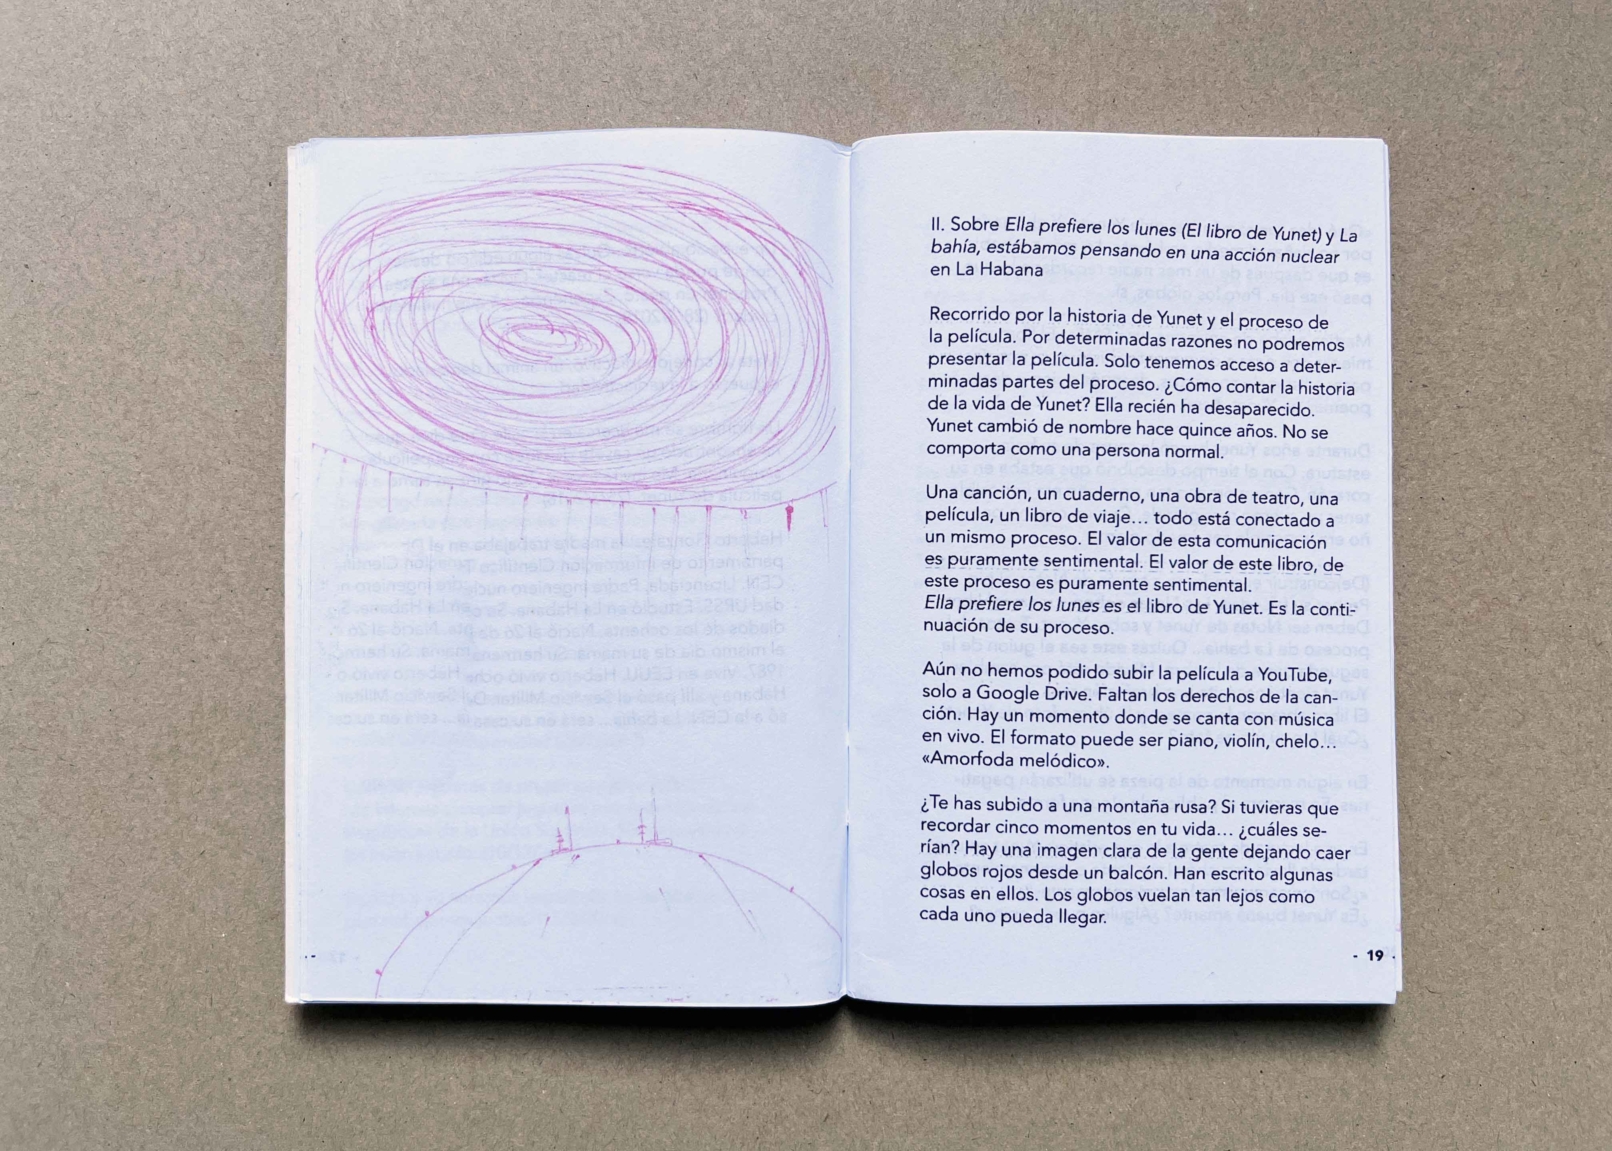 II. Sobre Ella prefiere los lunes (El libro de Yunet) y La
bahía, estábamos pensando en una acción nuclear
en La Habana
Recorrido por la historia de Yunet y el proceso de
la película. Por determinadas razones no podremos
presentar la película. Solo tenemos acceso a deter-
minadas partes del proceso. ¿Cómo contar la historia
de la vida de Yunet? Ella recién ha desaparecido.
Yunet cambió de nombre hace quince años. No se
comporta como una persona normal.
Una canción, un cuaderno, una obra de teatro, una
película, un libro de viaje... todo está conectado a
un mismo proceso. El valor de esta comunicación
es puramente sentimental. El valor de este libro, de
este proceso es puramente sentimental.
Ella prefiere los lunes es el libro de Yunet. Es la conti-
nuación de su proceso.
Aún no hemos podido subir la película a YouTube,
solo a Google Drive. Faltan los derechos de la can-
ción. Hay un momento donde se canta con música
en vivo. El formato puede ser piano, violín, chelo...
«Amorfoda melódico».
¿Te has subido a una montaña rusa? Si tuvieras que
recordar cinco momentos en tu vida... ¿cuáles se-
rían? Hay una imagen clara de la gente dejando caer
globos rojos desde un balcón. Han escrito algunas
cosas en ellos. Los globos vuelan tan lejos como
cada uno pueda llegar.
- 19 -